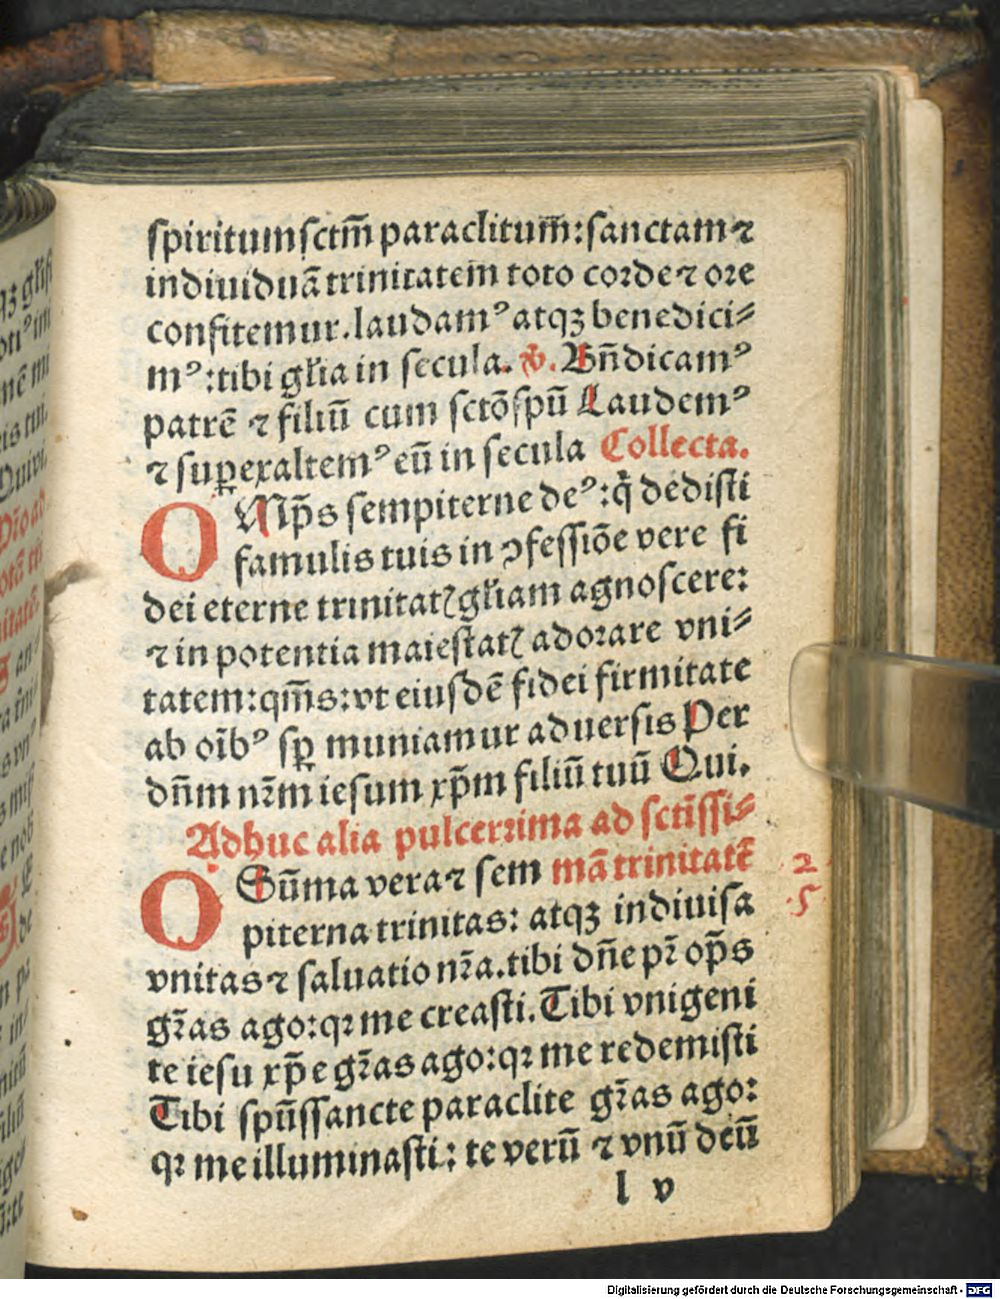 spiritum sctm̄ paraclitum̄: sanctam ⁊
indiuiduā trinitatem toto corde ⁊ ore
confitemur. laudamꝰ atqꝫ benedici⸗
mꝰ: tibi gl̓ia in secula. ℣. Bn̄dicamꝰ
patrē ⁊ filiū cum sctō spū Laudemꝰ
⁊ suꝑexaltemꝰ eū in secula Collecta.
OMp̄s sempiterne deꝰ: q̄ dedisti
famulis tuis in ꝯfessiōe vere fi
dei eterne trinitatꝭ gl̓iam agnoscere:
⁊ in potentia maiestatꝭ adorare vni⸗
tatem: qm̄s: vt eiusdē fidei firmitate
ab oīb̓ꝰ sꝑ muniamur aduersis Per
dn̄m nr̄m iesum xp̄m filiū tuū Qui.
Adhuc alia pulcerrima ad sctīssi⸗
mā trinitatē
O Sūma vera ⁊ sem
piterna trinitas: atqꝫ indiuisa
vnitas ⁊ saluatio nr̄a. tibi dn̄e pr̄ op̄s
gr̄as ago: qꝛ me creasti. Tibi vnigeni
te iesu xp̄e gr̄as ago: qꝛ me redemisti
Tibi spūssancte paraclite gr̄as ago:
qꝛ me illuminasti: te verū ⁊ vnū deū
l v
2
5
Digitalisierung gefördert durch die Deutsche Forschungsgemeinschaft - DFG